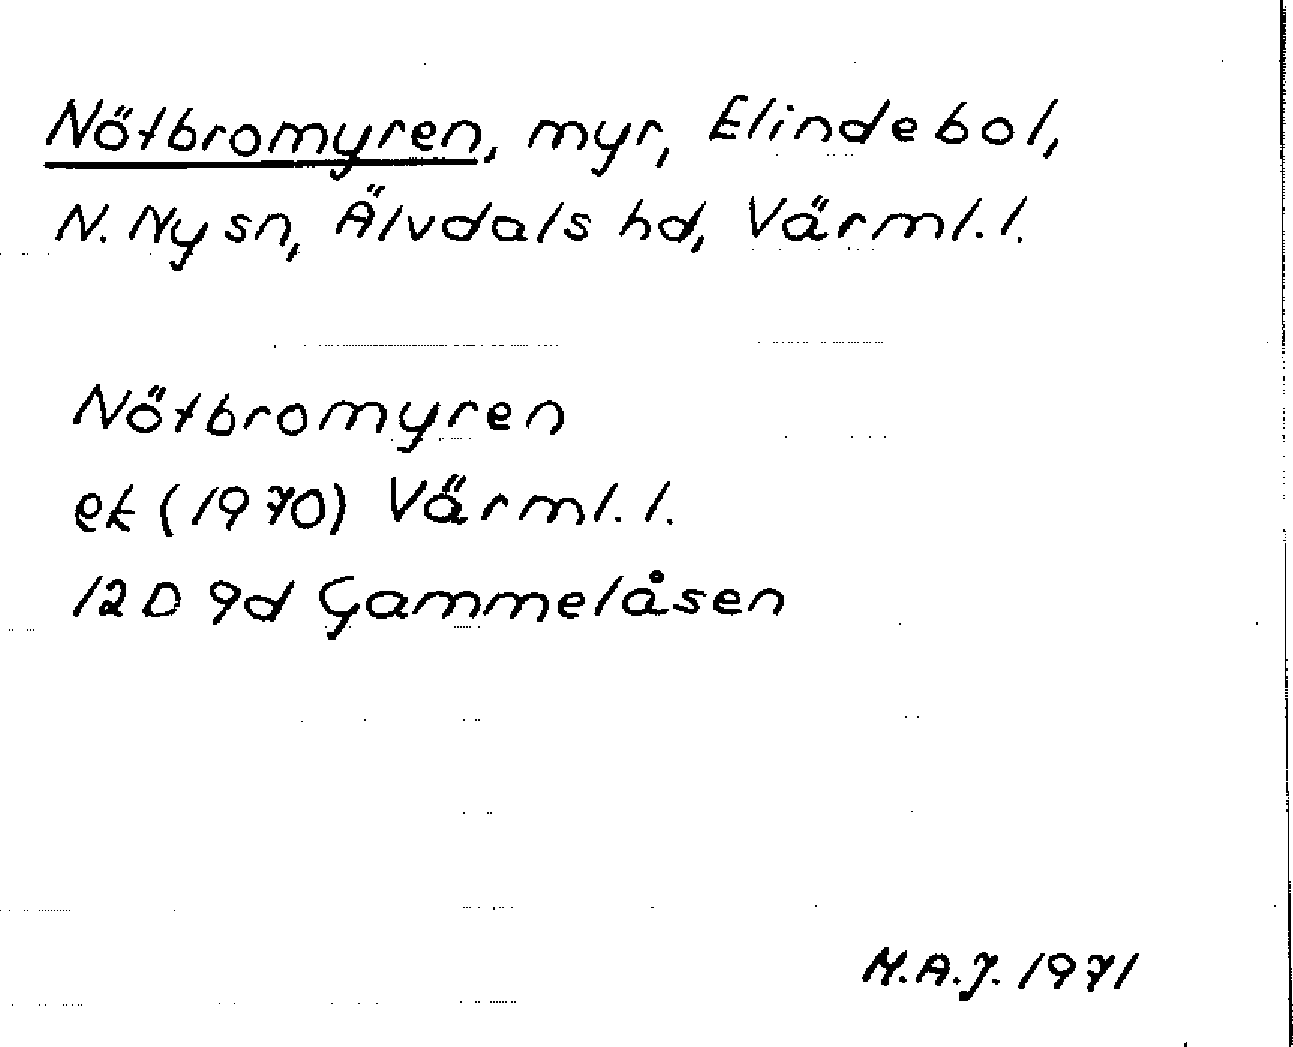 Nötbromyren, myr, Elindebol,
N. Ny sn, Älvdals hd, Värml. l.
Nötbromyren
ek (1970) Värml. l.
12 D 9d Gammelåsen
M.A.J. 1971